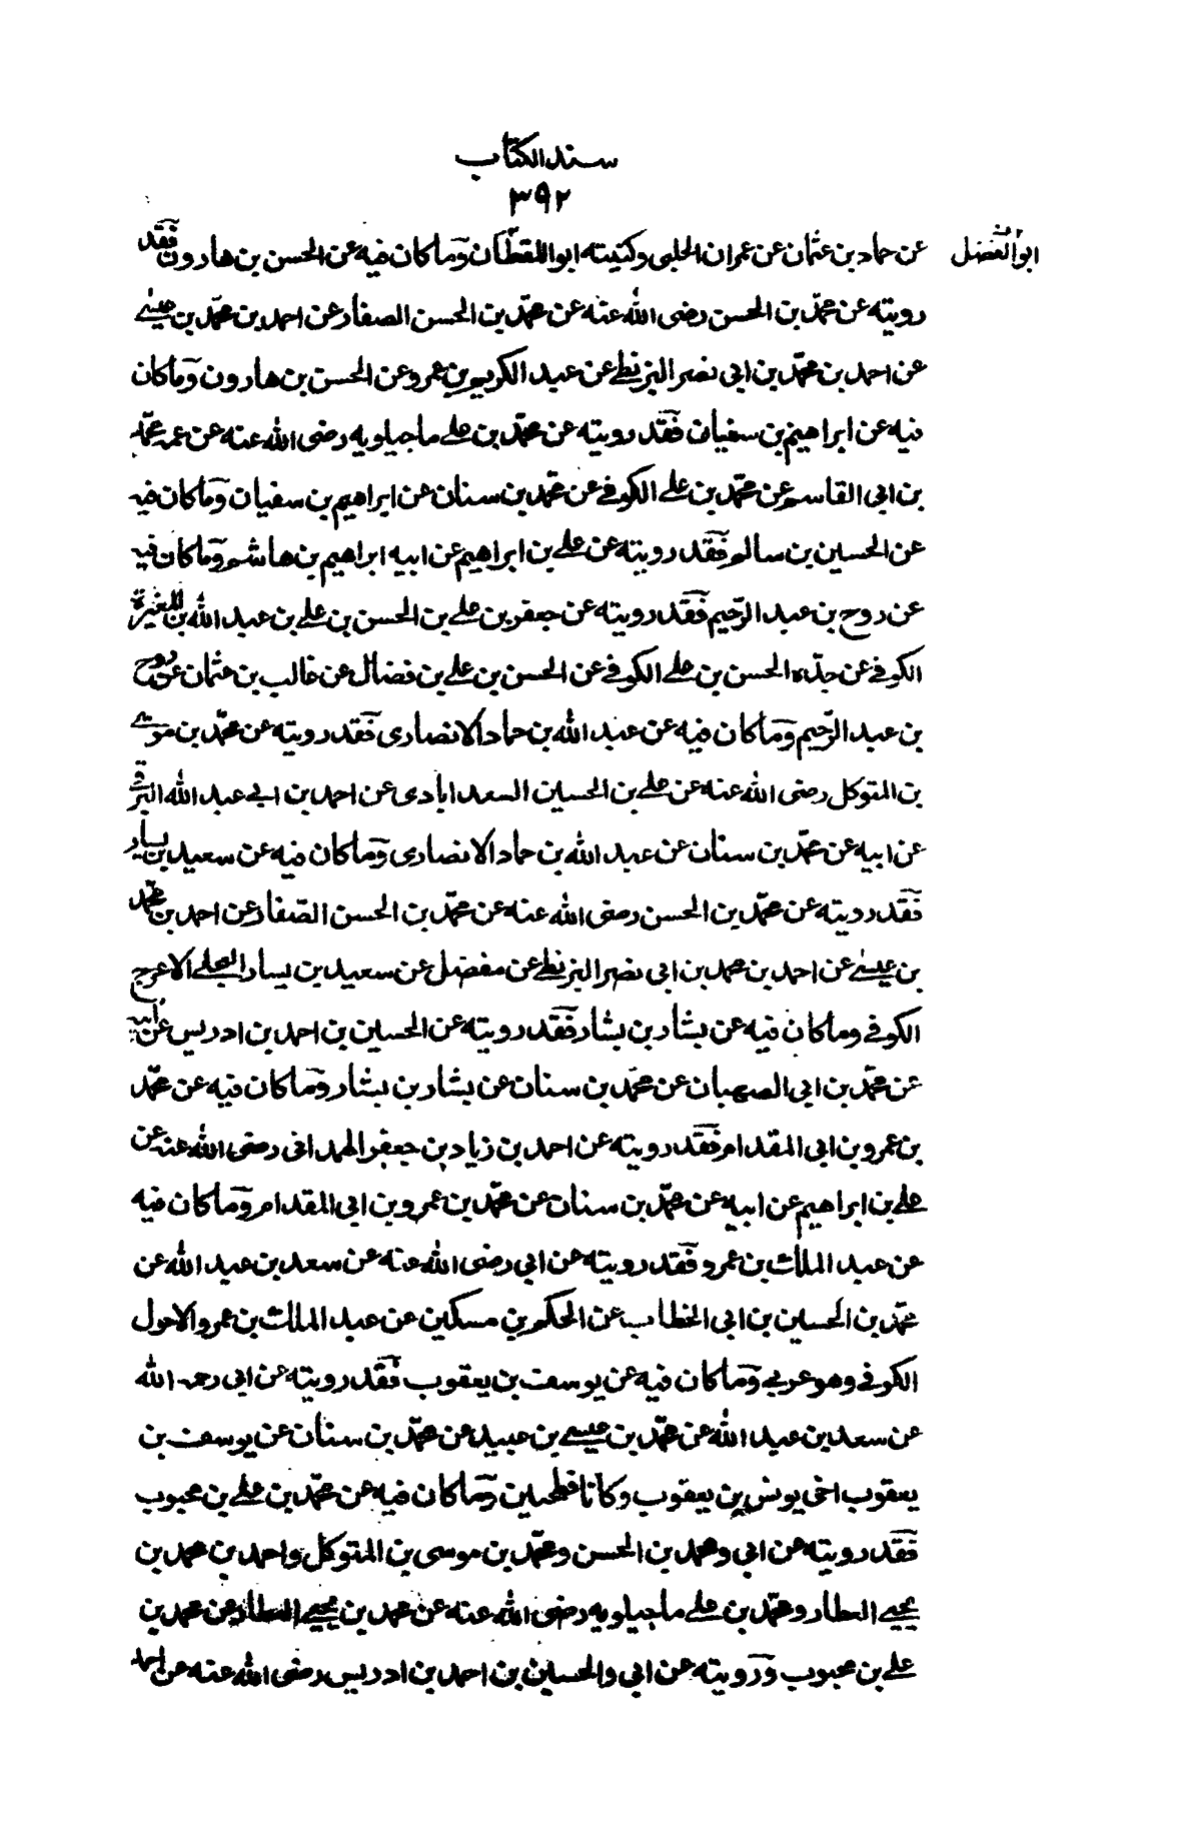 سند الكتاب
٣٩٢
ابو الفضل
عن حماد بن عثمان عن عمران الحلبى وكنيته ابو اليقظان وما كان فيه عن الحسن بن هارون فقد
رويته عن محمّد بن الحسن رضى الله عنه عن محمّد بن الحسن الصفار عن احمد بن محمّد بن عيسى
عن احمد بن محمّد بن ابى نصر البزنطى عن عبد الكريم بن عمرو عن الحسن بن هارون وما كان
فيه عن ابراهيم بن سفيان فقد رويته عن محمّد بن على ماجيلويه رضى الله عنه عن عمه محمّد
بن ابى القاسم عن محمّد بن على الكوفى عن محمّد بن سنان عن ابراهيم بن سفيان وما كان فيه
عن الحسين بن سالم فقد رويته عن على بن ابراهيم عن ابيه ابراهيم بن هاشم وما كان فيه
عن روح بن عبد الرّحيم فقد رويته عن جعفر بن على بن الحسن بن على بن عبد الله بن المغيرة
الكوفى عن جدّه الحسن بن على الكوفى عن الحسن بن على بن فضال عن غالب بن عثمان عن روح
بن عبد الرّحيم وما كان فيه عن عبد الله بن حماد الانصارى فقد رويته عن محمّد بن موسى
بن المتوكل رضى الله عنه عن على بن الحسين السعدابادى عن احمد بن ابى عبد الله البرقى
عن ابيه عن محمّد بن سنان عن عبد الله بن حماد الانصارى وما كان فيه عن سعيد بن يسار
فقد رويته عن محمّد بن الحسن رضى الله عنه عن محمّد بن الحسن الصّفار عن احمد بن محمّد
بن عيسى عن احمد بن محمد بن ابى نصر البزنطى عن مفضل عن سعيد بن يسار العجلى الاعرج
الكوفى وما كان فيه عن بشار بن بشار فقد رويته عن الحسين بن احمد بن ادريس عن ابيه
عن محمّد بن ابى الصهبان عن محمّد بن سنان عن بشار بن بشار وما كان فيه عن محمّد
بن عمرو بن ابى المقدام فقد رويته عن احمد بن زياد بن جعفر الهمدانى رضى الله عنه عن
على بن ابراهيم عن ابيه عن محمّد بن سنان عن محمّد بن عمرو بن ابى المقدام وما كان فيه
عن عبد الملك بن عمرو فقد رويته عن ابى رضى الله عنه عن سعد بن عبد الله عن
محمّد بن الحسين بن ابى الخطاب عن الحكم بن مسكين عن عبد الملك بن عمرو الاحول
الكوفى وهو عربى وما كان فيه عن يوسف بن يعقوب فقد رويته عن ابى رحمه الله
عن سعد بن عبد الله عن محمّد بن عيسى بن عبيد عن محمّد بن سنان عن يوسف بن
يعقوب اخى يونس بن يعقوب وكانا فطحيين وما كان فيه عن محمّد بن على بن محبوب
فقد رويته عن ابى ومحمد بن الحسن ومحمّد بن موسى بن المتوكل واحمد بن محمد بن
يحيى العطار ومحمّد بن على ماجيلويه رضى الله عنه عن محمد بن يحيى العطار عن محمد بن
على بن محبوب ورويته عن ابى والحسين بن احمد بن ادريس رضى الله عنه عن احمد